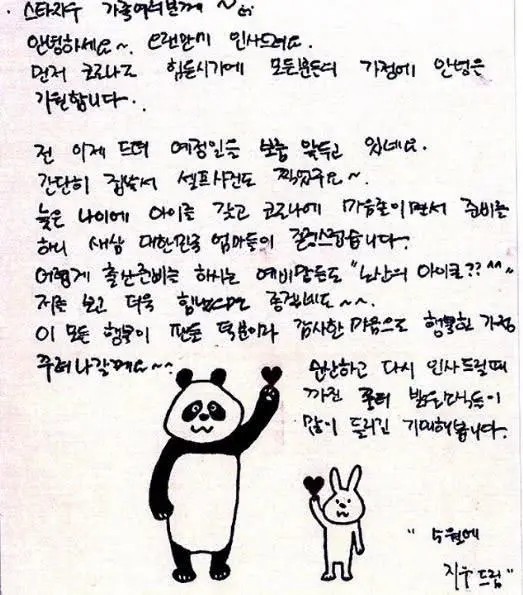 · 스타지우 가족여러분께 ~
안녕하세요~. 오랜만에 인사드려요.
먼저 코로나로 힘든시기에 모든분들의 가정에 안녕을
기원합니다.
전 이제 드뎌 예정일을 보름 앞두고 있네요.
간단히 집에서 셀프사진도 찍었구요~.
늦은 나이에 아이를 갖고 코로나에 마음졸이면서 준비를
하니 새삼 대한민국 엄마들이 존경스럽습니다.
어렵게 출산준비는 하시는 예비맘들도 "노산의 아이콘?? ^^~
저를 보고 더욱 힘내시면 좋겠네요 ~~.
이 모든 행복이 팬분 덕분이라 감사한 마음으로 행복한 가정
꾸려나갈께요~~
순산하고 다시 인사드릴때
까진 좋은 밝은소식들이
많이 들리길 기대해봅니다.
" 수원에
지우 드림 "